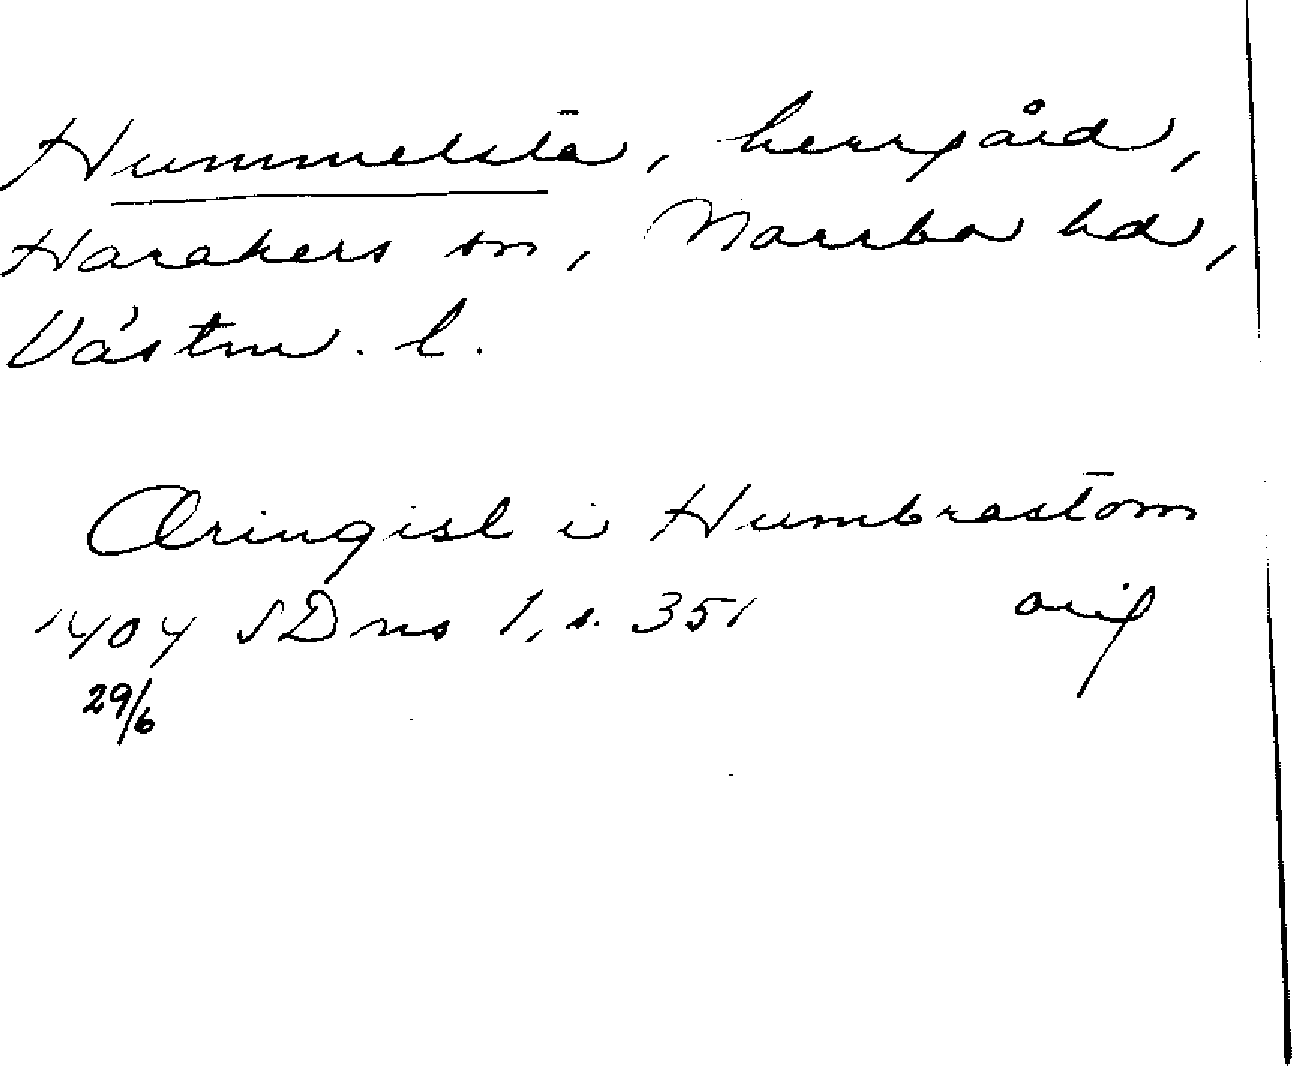 Hummelsta, herrgård,
Harakers sn, Norrbo hd,
Västm. l.
Æringisl i Humbrastom
1404 SDns 1, s. 351 orig
29/6